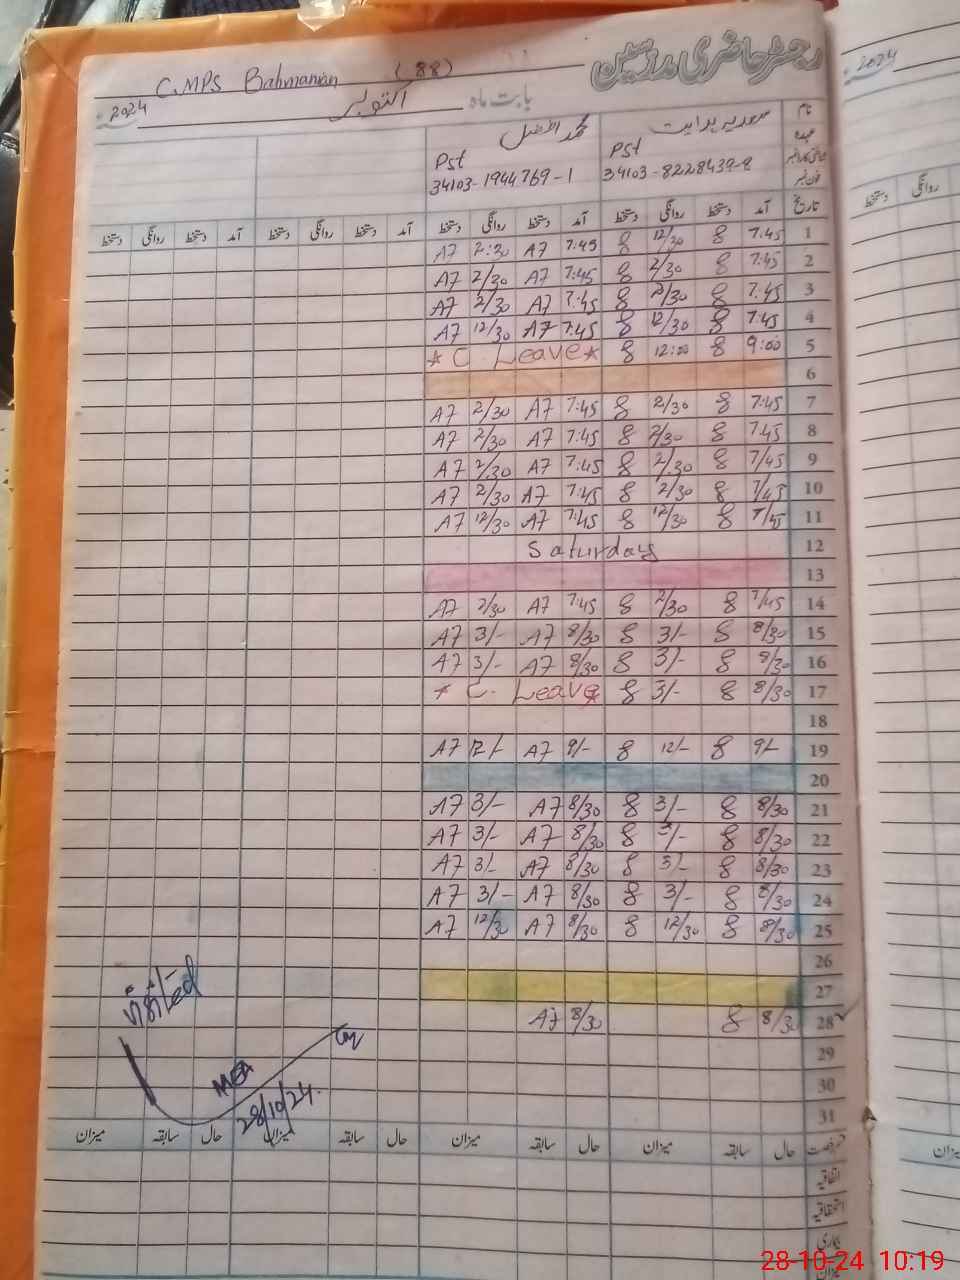 رجسٹر حاضری مدرسین
C.MPS Bahmanian (88)
2024 اکتوبر بابت ماہ
2024
نام
عہدہ
فون نمبر
محمد افضل
Pst
34103-1944769-1
سعدیہ ہدایت
Pst
34103-8228439-8
دستخط روانگی دستخط آمد دستخط روانگی دستخط آمد دستخط روانگی دستخط آمد دستخط روانگی دستخط آمد تاریخ
دستخط روانگی
A7 2:30 A7 7:45 8 12/30 8 7:45 1
A7 2/30 A7 7:45 8 2/30 8 7:45 2
A7 2/30 A7 7:45 8 2/30 8 7:45 3
A7 12/30 A7 7:45 8 12/30 8 7:45 4
* C. Leave * 8 12:00 8 9:00 5
6
A7 2/30 A7 7:45 8 2/30 8 7:45 7
A7 2/30 A7 7:45 8 2/30 8 7:45 8
A7 2/30 A7 7:45 8 2/30 8 7/45 9
A7 2/30 A7 7:45 8 2/30 8 7/45 10
A7 12/30 A7 7:45 8 12/30 8 7/45 11
Saturday 12
13
A7 2/30 A7 7:45 8 2/30 8 7/45 14
A7 3/- A7 8/30 8 3/- 8 8/30 15
A7 3/- A7 8/30 8 3/- 8 8/30 16
* C. Leave 8 3/- 8 8/30 17
18
A7 12/- A7 9/- 8 12/- 8 9/- 19
20
A7 3/- A7 8/30 8 3/- 8 8/30 21
A7 3/- A7 8/30 8 3/- 8 8/30 22
A7 3/- A7 8/30 8 3/- 8 8/30 23
A7 3/- A7 8/30 8 3/- 8 8/30 24
A7 12/30 A7 8/30 8 12/30 8 8/30 25
26
27
A7 8/30 8 8/30 28
29
30
31
visited
MEA
28/10/24.
میزان سابقہ حال میزان سابقہ حال میزان سابقہ حال میزان سابقہ حال رخصت
اتفاقیہ
استحقاقیہ
بیماری
میزان
28-10-24 10:19